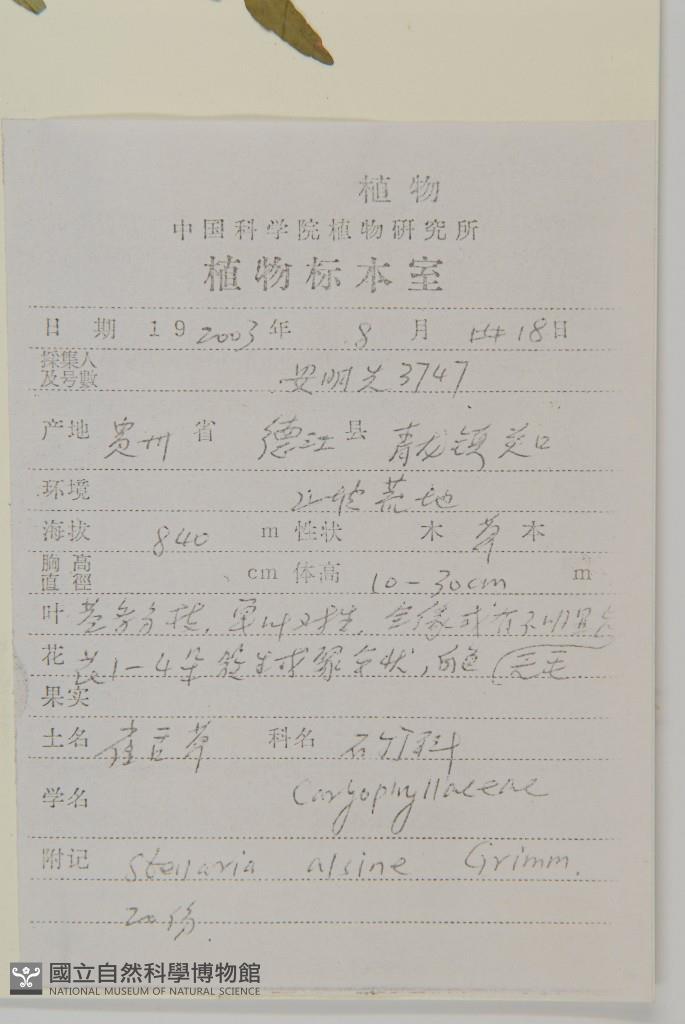 植物
中国科学院植物研究所
植物标本室
日 期 19 2003 年 8 月 18日
採集人
及号數 安明先 3747
产地 贵州 省 德江 县 青龙镇 关口
环境 山坡荒地
海拔 840 m 性状 木 草 本
胸 高
直 徑 cm 体高 10-30cm m
叶 茎多分枝,单叶对生,全缘或有不明显
花 花1-4朵 簇生或聚伞状,白色 无毛
果实
土名 雀舌草 科名 石竹科
学名 Caryophyllaceae
附记 Stellaria alsine Grimm.
20份.
國立自然科學博物館
NATIONAL MUSEUM OF NATURAL SCIENCE